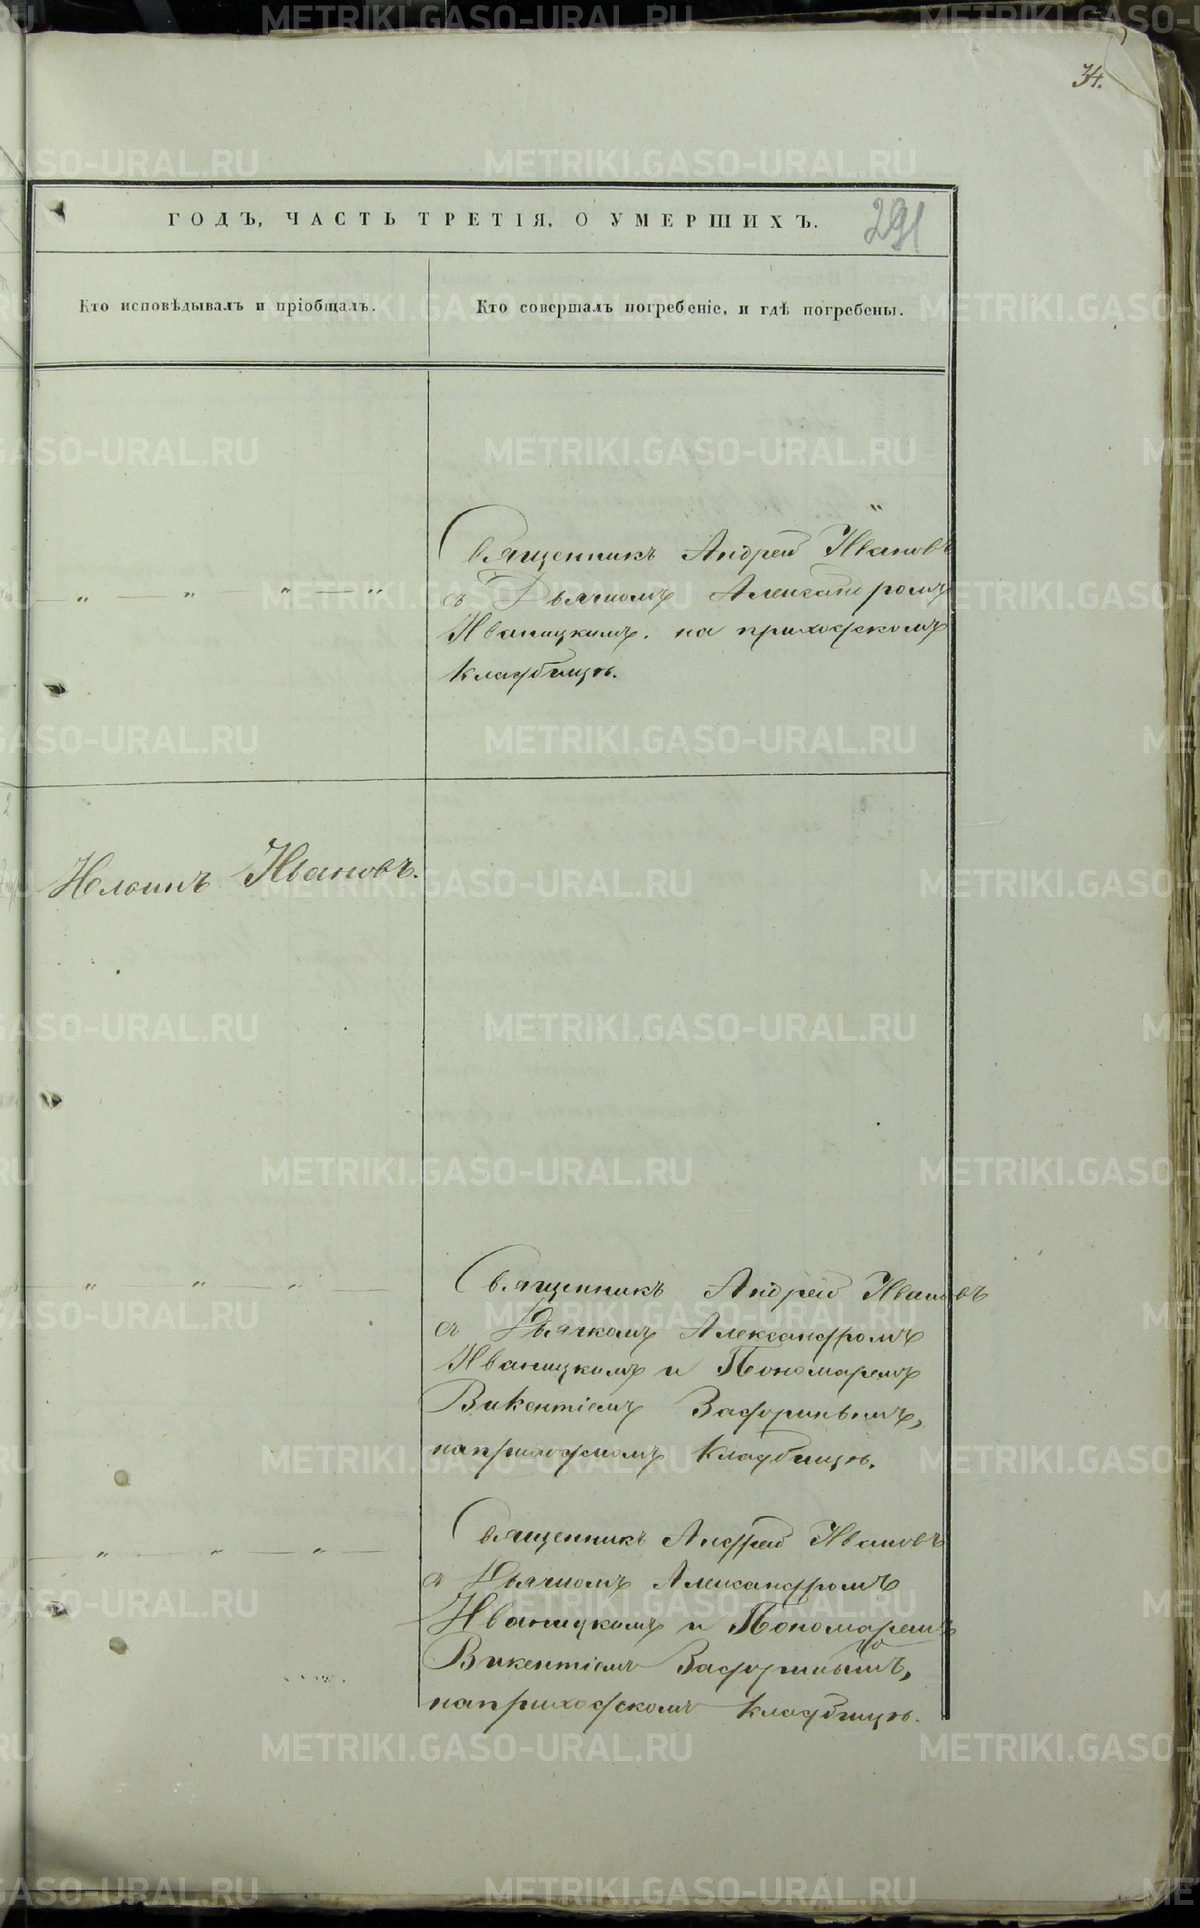 34.
ГОДЪ, ЧАСТЬ ТРЕТІЯ, О УМЕРШИХЪ.
291
Кто исповѣдывалъ и пріобщалъ.
Кто совершалъ погребеніе, и гдѣ погребены.
Священникъ Андрей Ивановъ
съ Дьячкомъ Александромъ
Иваницкимъ. на приходскомъ
кладбищѣ.
Ивановъ.
Священникъ Андрей Ивановъ
съ Дьячкомъ Александромъ
Иваницкимъ и Пономаремъ
Викентіемъ Задоринымъ,
наприходскомъ кладбищѣ.
Священникъ Андрей Ивановъ
съ Дьячкомъ Александромъ
Иваницкимъ и Пономаремъ
Викентіемъ Задоринымъ,
наприходскомъ кладбищѣ.
METRIKI.GASO-URAL.RU